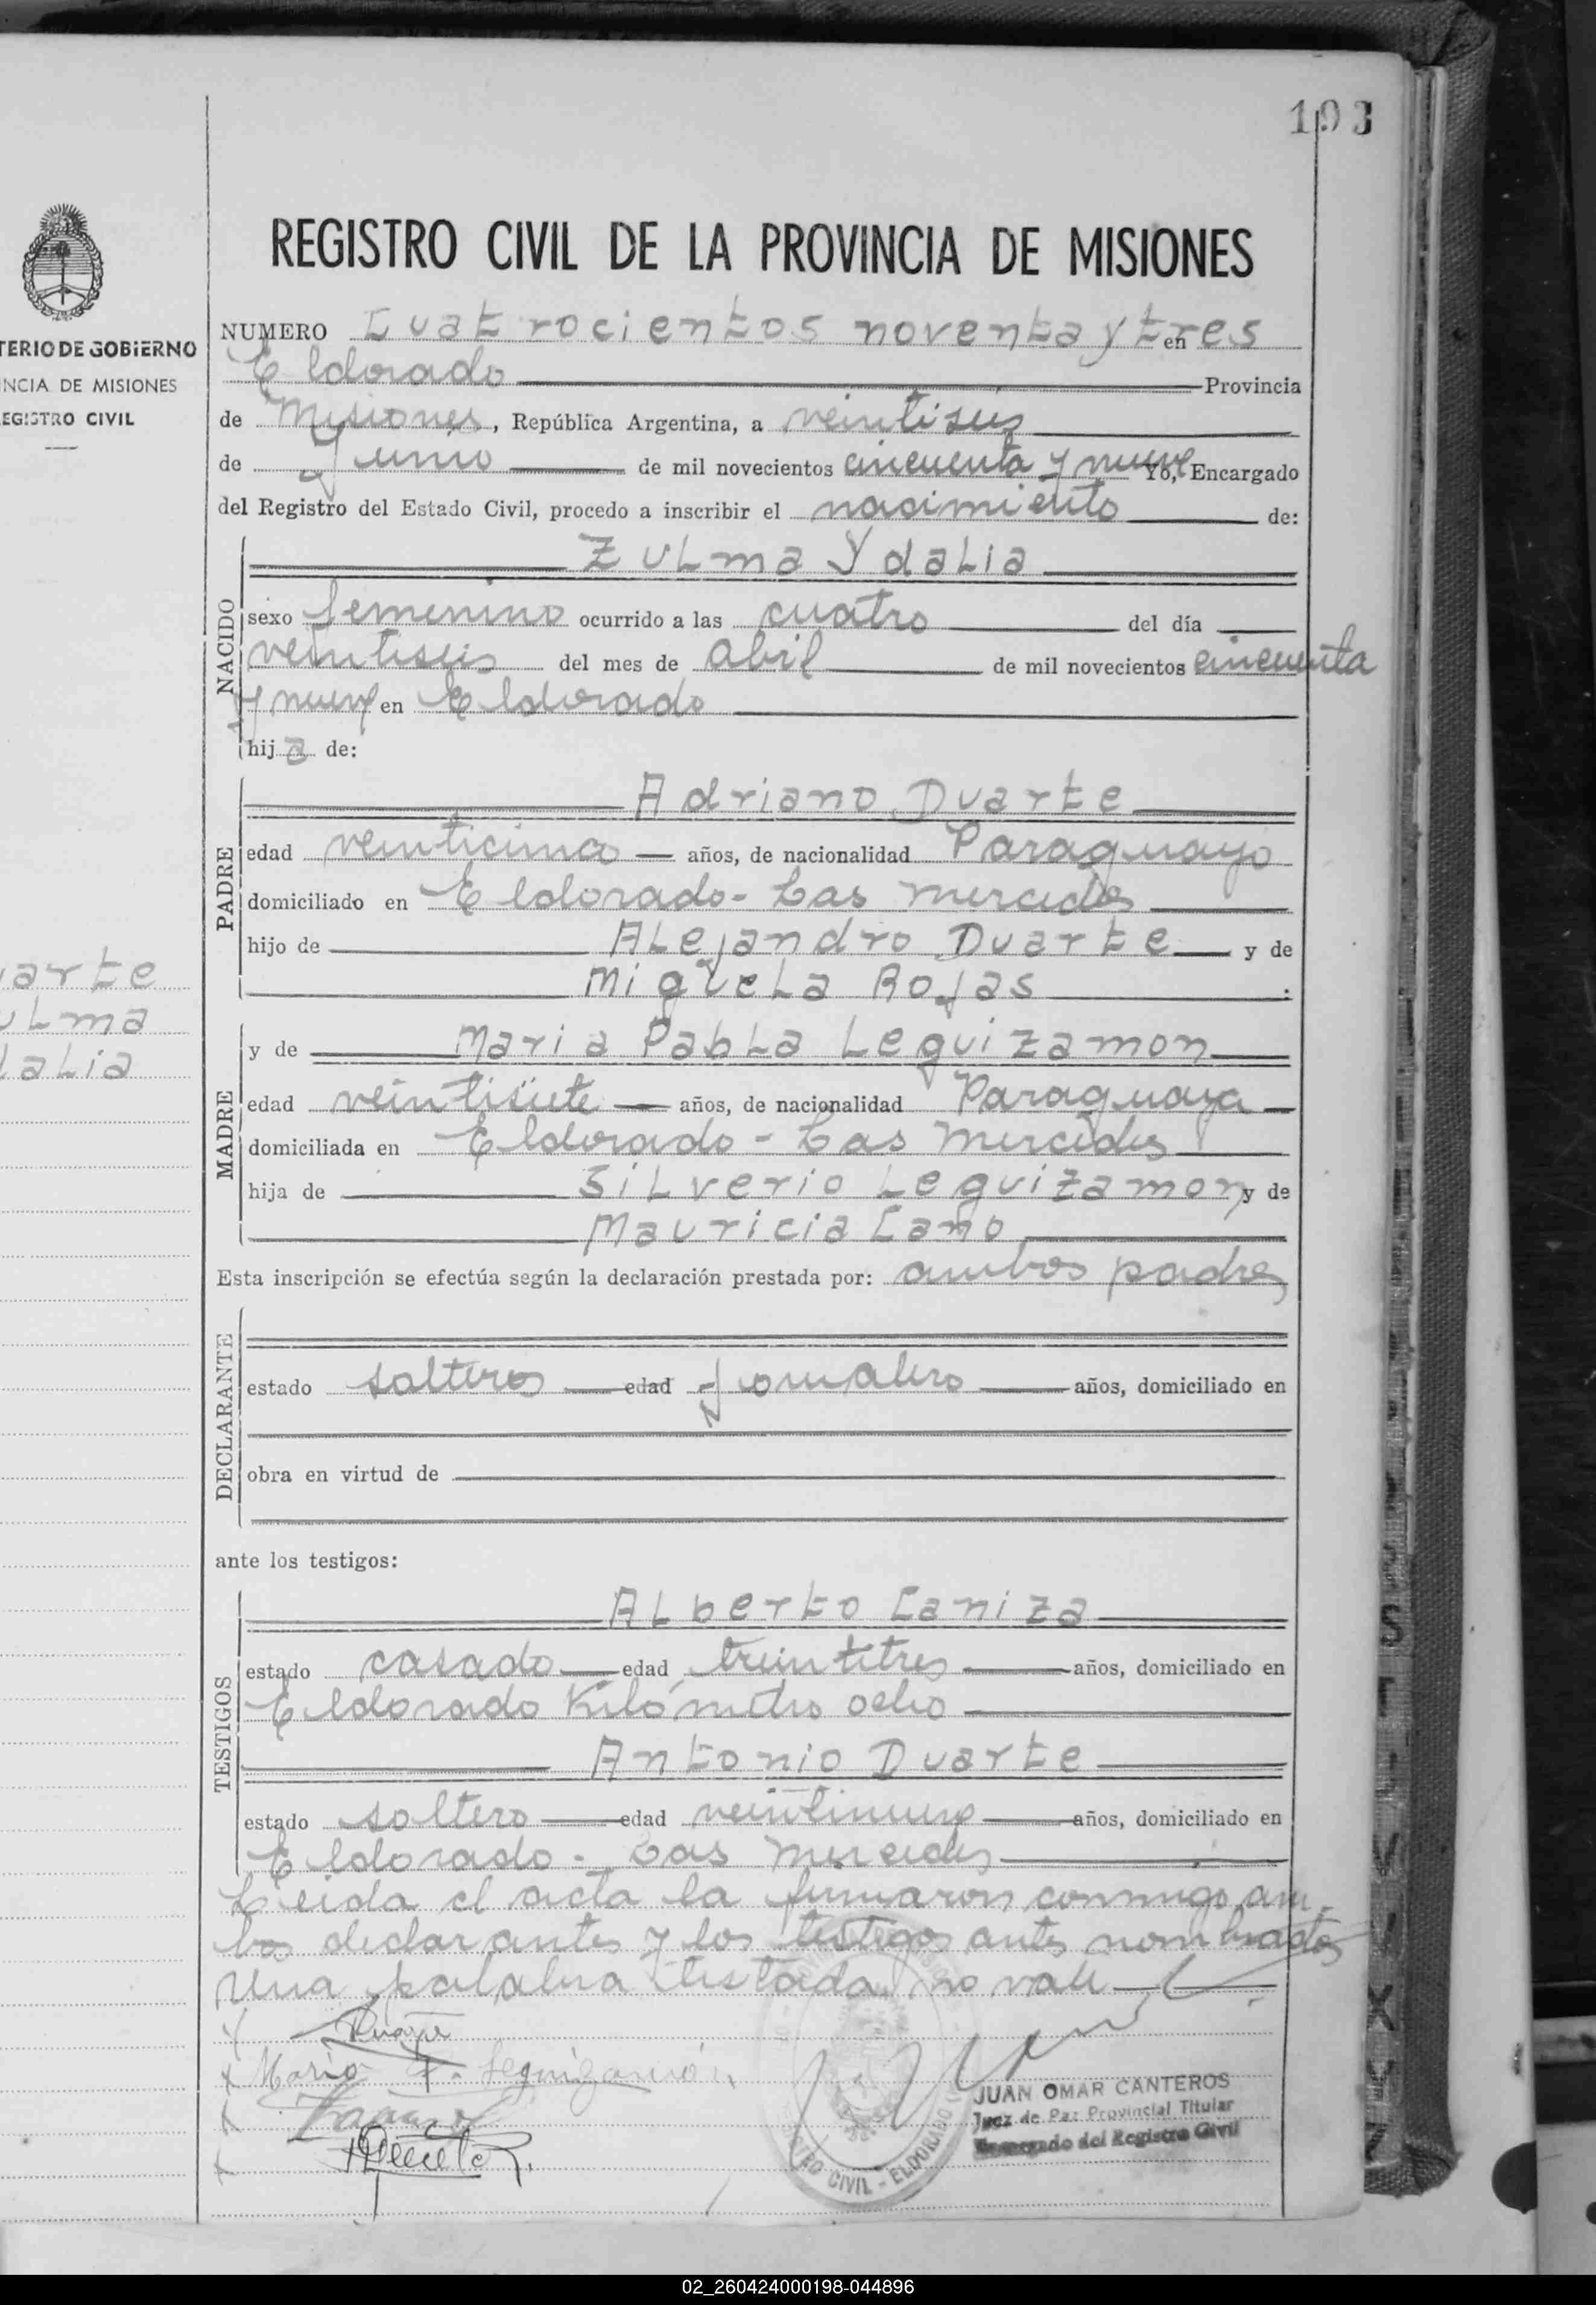 193
REGISTRO CIVIL DE LA PROVINCIA DE MISIONES
TERIO DE GOBIERNO
NCIA DE MISIONES
EGISTRO CIVIL
NUMERO Cuatrocientos noventa y tres en
Eldorado Provincia
de Misiones, República Argentina, a veintiseis
de Junio de mil novecientos cincuenta y nueve Yo, Encargado
del Registro del Estado Civil, procedo a inscribir el nacimiento de:
NACIDO
Zulma Ydalia
sexo femenino ocurrido a las cuatro del día
veintiseis del mes de abril de mil novecientos cincuenta
y nueve en Eldorado
hija de:
PADRE
Adriano Duarte
edad veinticinco años, de nacionalidad Paraguayo
domiciliado en Eldorado - Las Mercedes
hijo de Alejandro Duarte y de
Miguela Rojas :
arte
ulma
dalia
MADRE
y de Maria Pabla Leguizamon
edad veintisiete años, de nacionalidad Paraguaya
domiciliada en Eldorado - Las Mercedes
hija de Silverio Leguizamon y de
Mauricia Cano
Esta inscripción se efectúa según la declaración prestada por: ambos padres
DECLARANTE
estado solteros edad Jornalero años, domiciliado en
obra en virtud de
ante los testigos:
TESTIGOS
Alberto Caniza
estado casado edad treintitres años, domiciliado en
Eldorado Kilómetro ocho
Antonio Duarte
estado soltero edad veintinueve años, domiciliado en
Eldorado - Las Mercedes
Leida el acta la firmaron conmigo am-
bos declarantes y los testigos antes nombrados
Una palabra testada no vale
Maria P. Leguizamón
JUAN OMAR CANTEROS
Juez de Paz Provincial Titular
Encargado del Registro Civil
CIVIL - ELDORADO
02_260424000198-044896